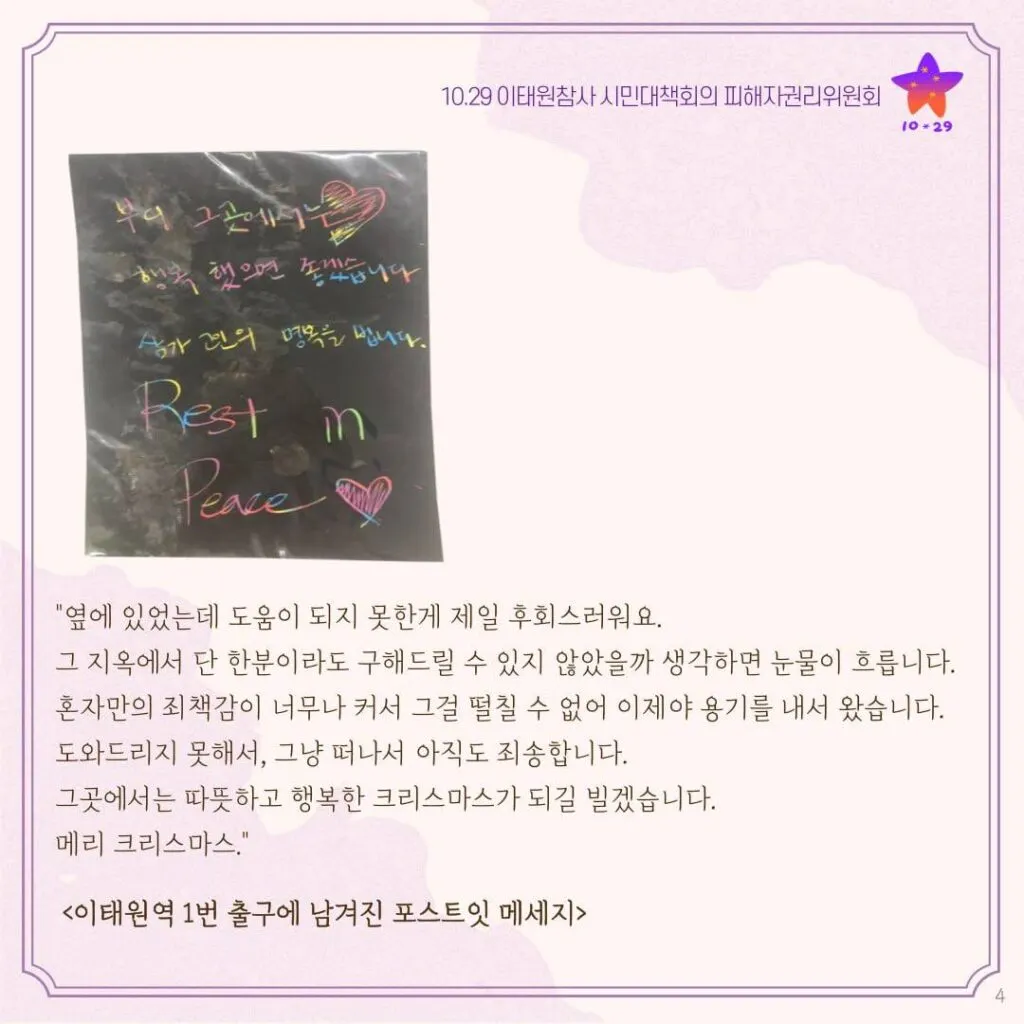 10.29 이태원참사 시민대책회의 피해자권리위원회
10*29
부디 그곳에서는
행복 했으면 좋겠습니다
삼가 고인의 명복을 빕니다.
Rest in
Peace
"옆에 있었는데 도움이 되지 못한게 제일 후회스러워요.
그 지옥에서 단 한분이라도 구해드릴 수 있지 않았을까 생각하면 눈물이 흐릅니다.
혼자만의 죄책감이 너무나 커서 그걸 떨칠 수 없어 이제야 용기를 내서 왔습니다.
도와드리지 못해서, 그냥 떠나서 아직도 죄송합니다.
그곳에서는 따뜻하고 행복한 크리스마스가 되길 빌겠습니다.
메리 크리스마스."
<이태원역 1번 출구에 남겨진 포스트잇 메세지>
4